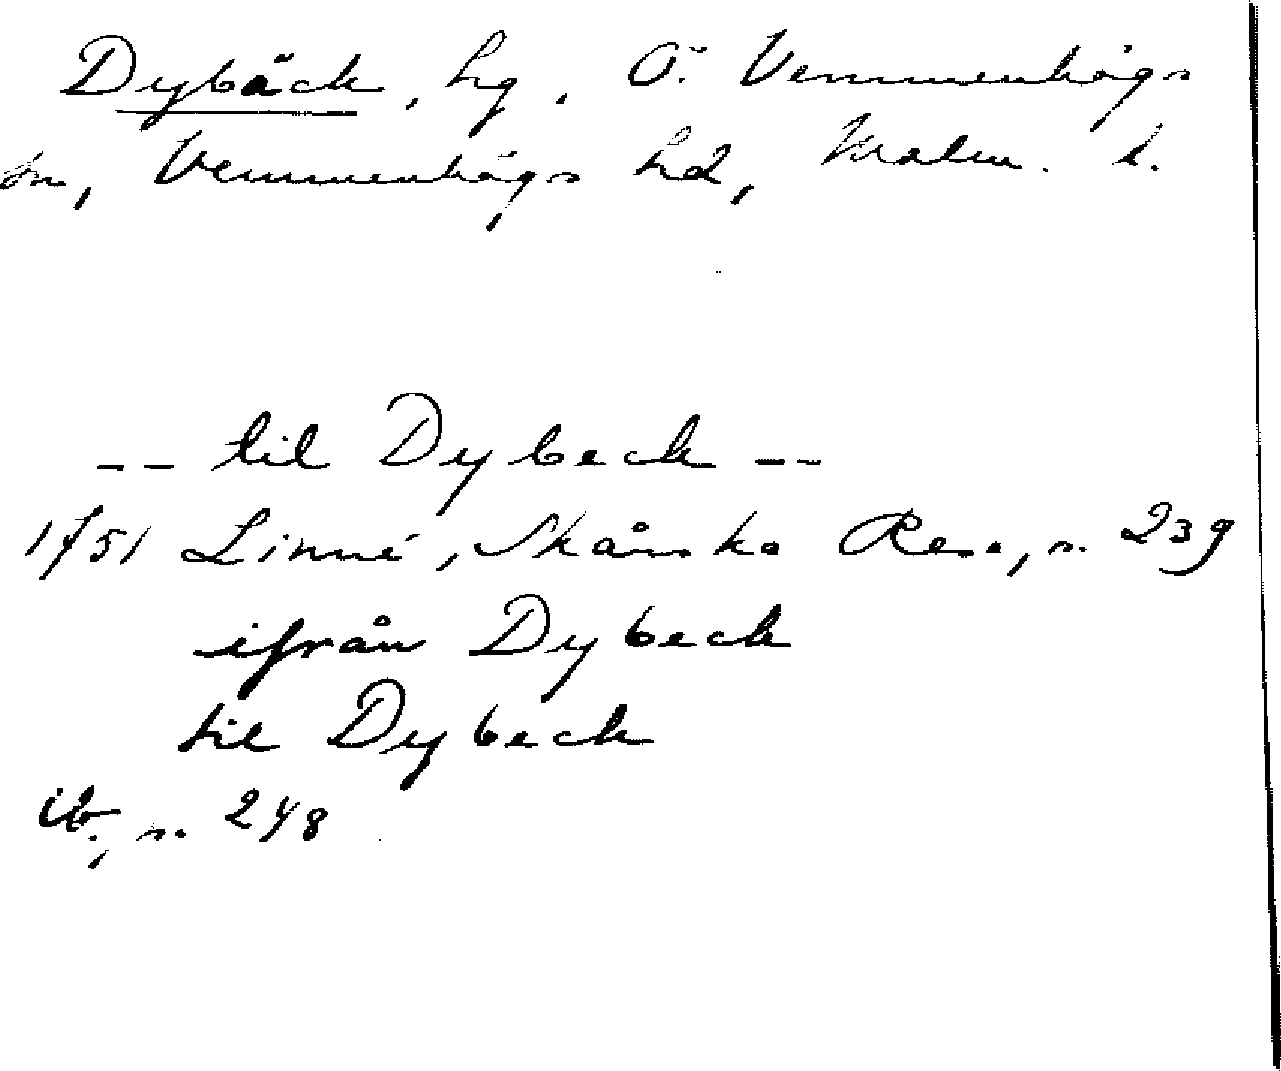 Dybäck, hg, Ö. Vemmenhögs
sn, Vemmenhögs hd, Malm. l.
-- til Dybeck --
1751 Linné, Skånska Resa, s. 239
ifrån Dybeck
til Dybeck
ib., s. 248